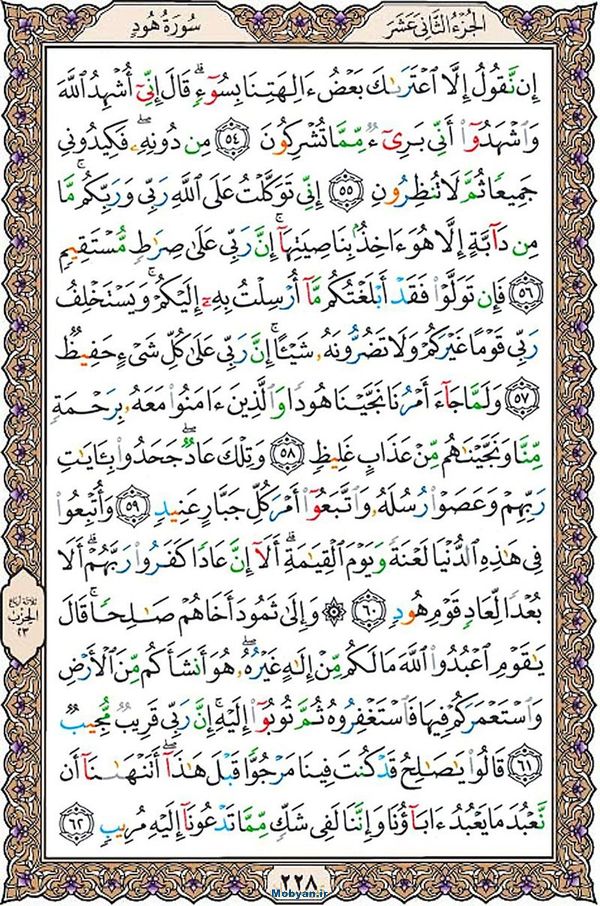 سُورَةُ هُودٍ
الجُزءُ الثَّانِي عَشَرَ
إِن نَّقُولُ إِلَّا ٱعْتَرَىٰكَ بَعْضُ ءَالِهَتِنَا بِسُوٓءٍۗ قَالَ إِنِّىٓ أُشْهِدُ ٱللَّهَ
وَٱشْهَدُوٓا۟ أَنِّى بَرِىٓءٌ مِّمَّا تُشْرِكُونَ ٥٤ مِن دُونِهِۦۖ فَكِيدُونِى
جَمِيعًا ثُمَّ لَا تُنظِرُونِ ٥٥ إِنِّى تَوَكَّلْتُ عَلَى ٱللَّهِ رَبِّى وَرَبِّكُمۚ مَّا
مِن دَآبَّةٍ إِلَّا هُوَ ءَاخِذٌۢ بِنَاصِيَتِهَآۚ إِنَّ رَبِّى عَلَىٰ صِرَٰطٍ مُّسْتَقِيمٍ
٥٦ فَإِن تَوَلَّوْا۟ فَقَدْ أَبْلَغْتُكُم مَّآ أُرْسِلْتُ بِهِۦٓ إِلَيْكُمْۚ وَيَسْتَخْلِفُ
رَبِّى قَوْمًا غَيْرَكُمْ وَلَا تَضُرُّونَهُۥ شَيْـًٔاۚ إِنَّ رَبِّى عَلَىٰ كُلِّ شَىْءٍ حَفِيظٌ
٥٧ وَلَمَّا جَآءَ أَمْرُنَا نَجَّيْنَا هُودًا وَٱلَّذِينَ ءَامَنُوا۟ مَعَهُۥ بِرَحْمَةٍ
مِّنَّا وَنَجَّيْنَٰهُم مِّنْ عَذَابٍ غَلِيظٍ ٥٨ وَتِلْكَ عَادٌۖ جَحَدُوا۟ بِـَٔايَٰتِ
رَبِّهِمْ وَعَصَوْا۟ رُسُلَهُۥ وَٱتَّبَعُوٓا۟ أَمْرَ كُلِّ جَبَّارٍ عَنِيدٍ ٥٩ وَأُتْبِعُوا۟
فِى هَٰذِهِ ٱلدُّنْيَا لَعْنَةً وَيَوْمَ ٱلْقِيَٰمَةِۗ أَلَآ إِنَّ عَادًا كَفَرُوا۟ رَبَّهُمْۗ أَلَا
بُعْدًا لِّعَادٍ قَوْمِ هُودٍ ٦٠ ۞ وَإِلَىٰ ثَمُودَ أَخَاهُمْ صَٰلِحًاۚ قَالَ
يَٰقَوْمِ ٱعْبُدُوا۟ ٱللَّهَ مَا لَكُم مِّنْ إِلَٰهٍ غَيْرُهُۥۖ هُوَ أَنشَأَكُم مِّنَ ٱلْأَرْضِ
وَٱسْتَعْمَرَكُمْ فِيهَا فَٱسْتَغْفِرُوهُ ثُمَّ تُوبُوٓا۟ إِلَيْهِۚ إِنَّ رَبِّى قَرِيبٌ مُّجِيبٌ
٦١ قَالُوا۟ يَٰصَٰلِحُ قَدْ كُنتَ فِينَا مَرْجُوًّا قَبْلَ هَٰذَآۖ أَتَنْهَىٰنَآ أَن
نَّعْبُدَ مَا يَعْبُدُ ءَابَآؤُنَا وَإِنَّنَا لَفِى شَكٍّ مِّمَّا تَدْعُونَآ إِلَيْهِ مُرِيبٍ ٦٢
ثلاثة أرباع
الحزب
٢٣
٢٢٨
Mobyan.ir